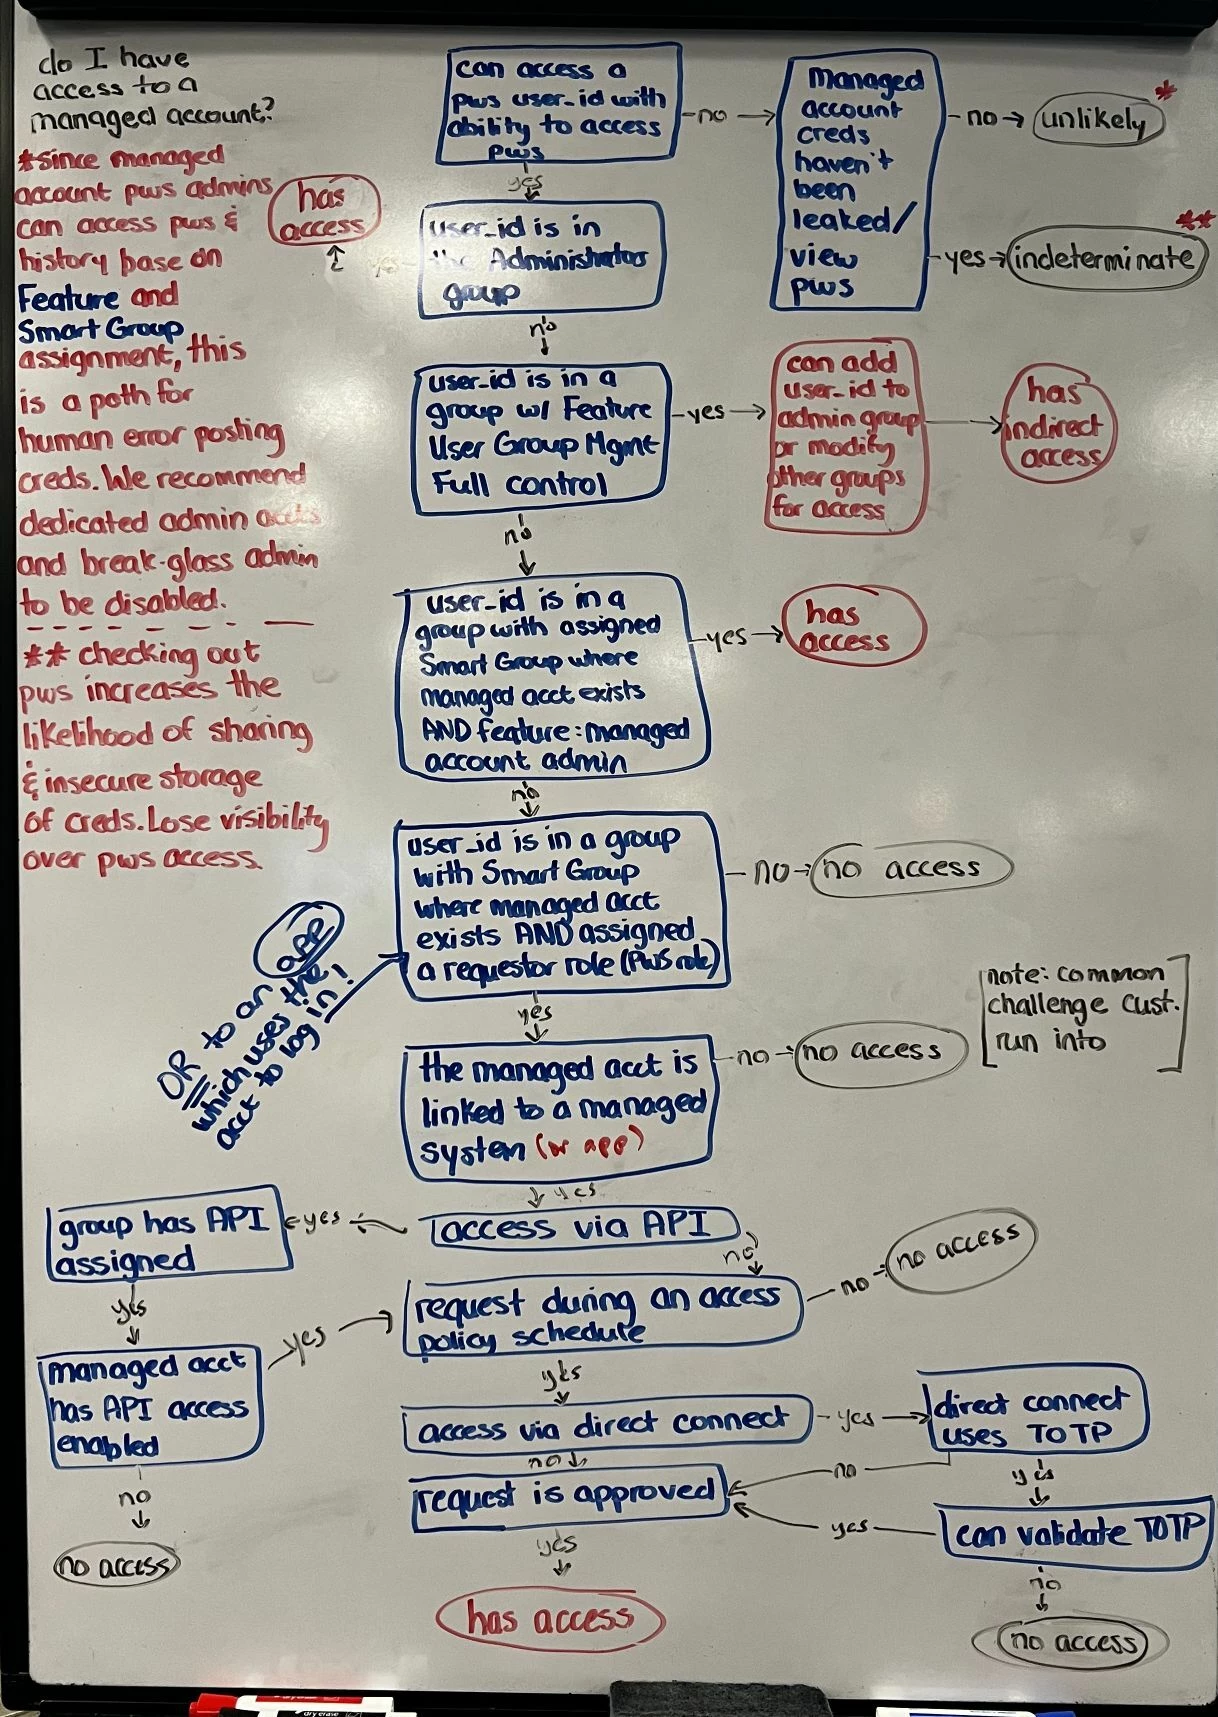 do I have
access to a
managed account?
*since managed
account pws admins
can access pws &
history base on
Feature and
Smart Group
assignment, this
is a path for
human error posting
creds. We recommend
dedicated admin accts
and break-glass admin
to be disabled.
** checking out
pws increases the
likelihood of sharing
& insecure storage
of creds. Lose visibility
over pws access.
can access a
pws user_id with
ability to access
pws
no
managed
account
creds
haven't
been
leaked/
view
pws
no
unlikely
*
yes
indeterminate
**
yes
user_id is in
the Administrators
group
yes
has
access
no
user_id is in a
group w/ Feature
User Group Mgmt
Full control
yes
can add
user_id to
admin group
or modify
other groups
for access
has
indirect
access
no
user_id is in a
group with assigned
Smart Group where
managed acct exists
AND feature: managed
account admin
yes
has
access
no
user_id is in a group
with Smart Group
where managed acct
exists AND assigned
a requestor role (PWS role)
no
no access
OR to an app
which uses the
acct to log in!
yes
the managed acct is
linked to a managed
system (or app)
no
no access
note: common
challenge cust.
run into
yes
access via API
yes
group has API
assigned
yes
managed acct
has API access
enabled
no
no access
yes
no
request during an access
policy schedule
no
no access
yes
access via direct connect
yes
direct connect
uses TOTP
no
yes
can validate TOTP
yes
no
no access
no
request is approved
yes
has access